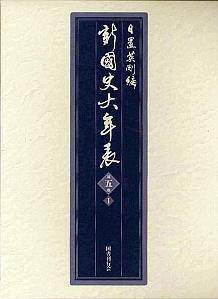 日置英剛編
新國史大年表
第五巻 Ⅰ
国書刊行会